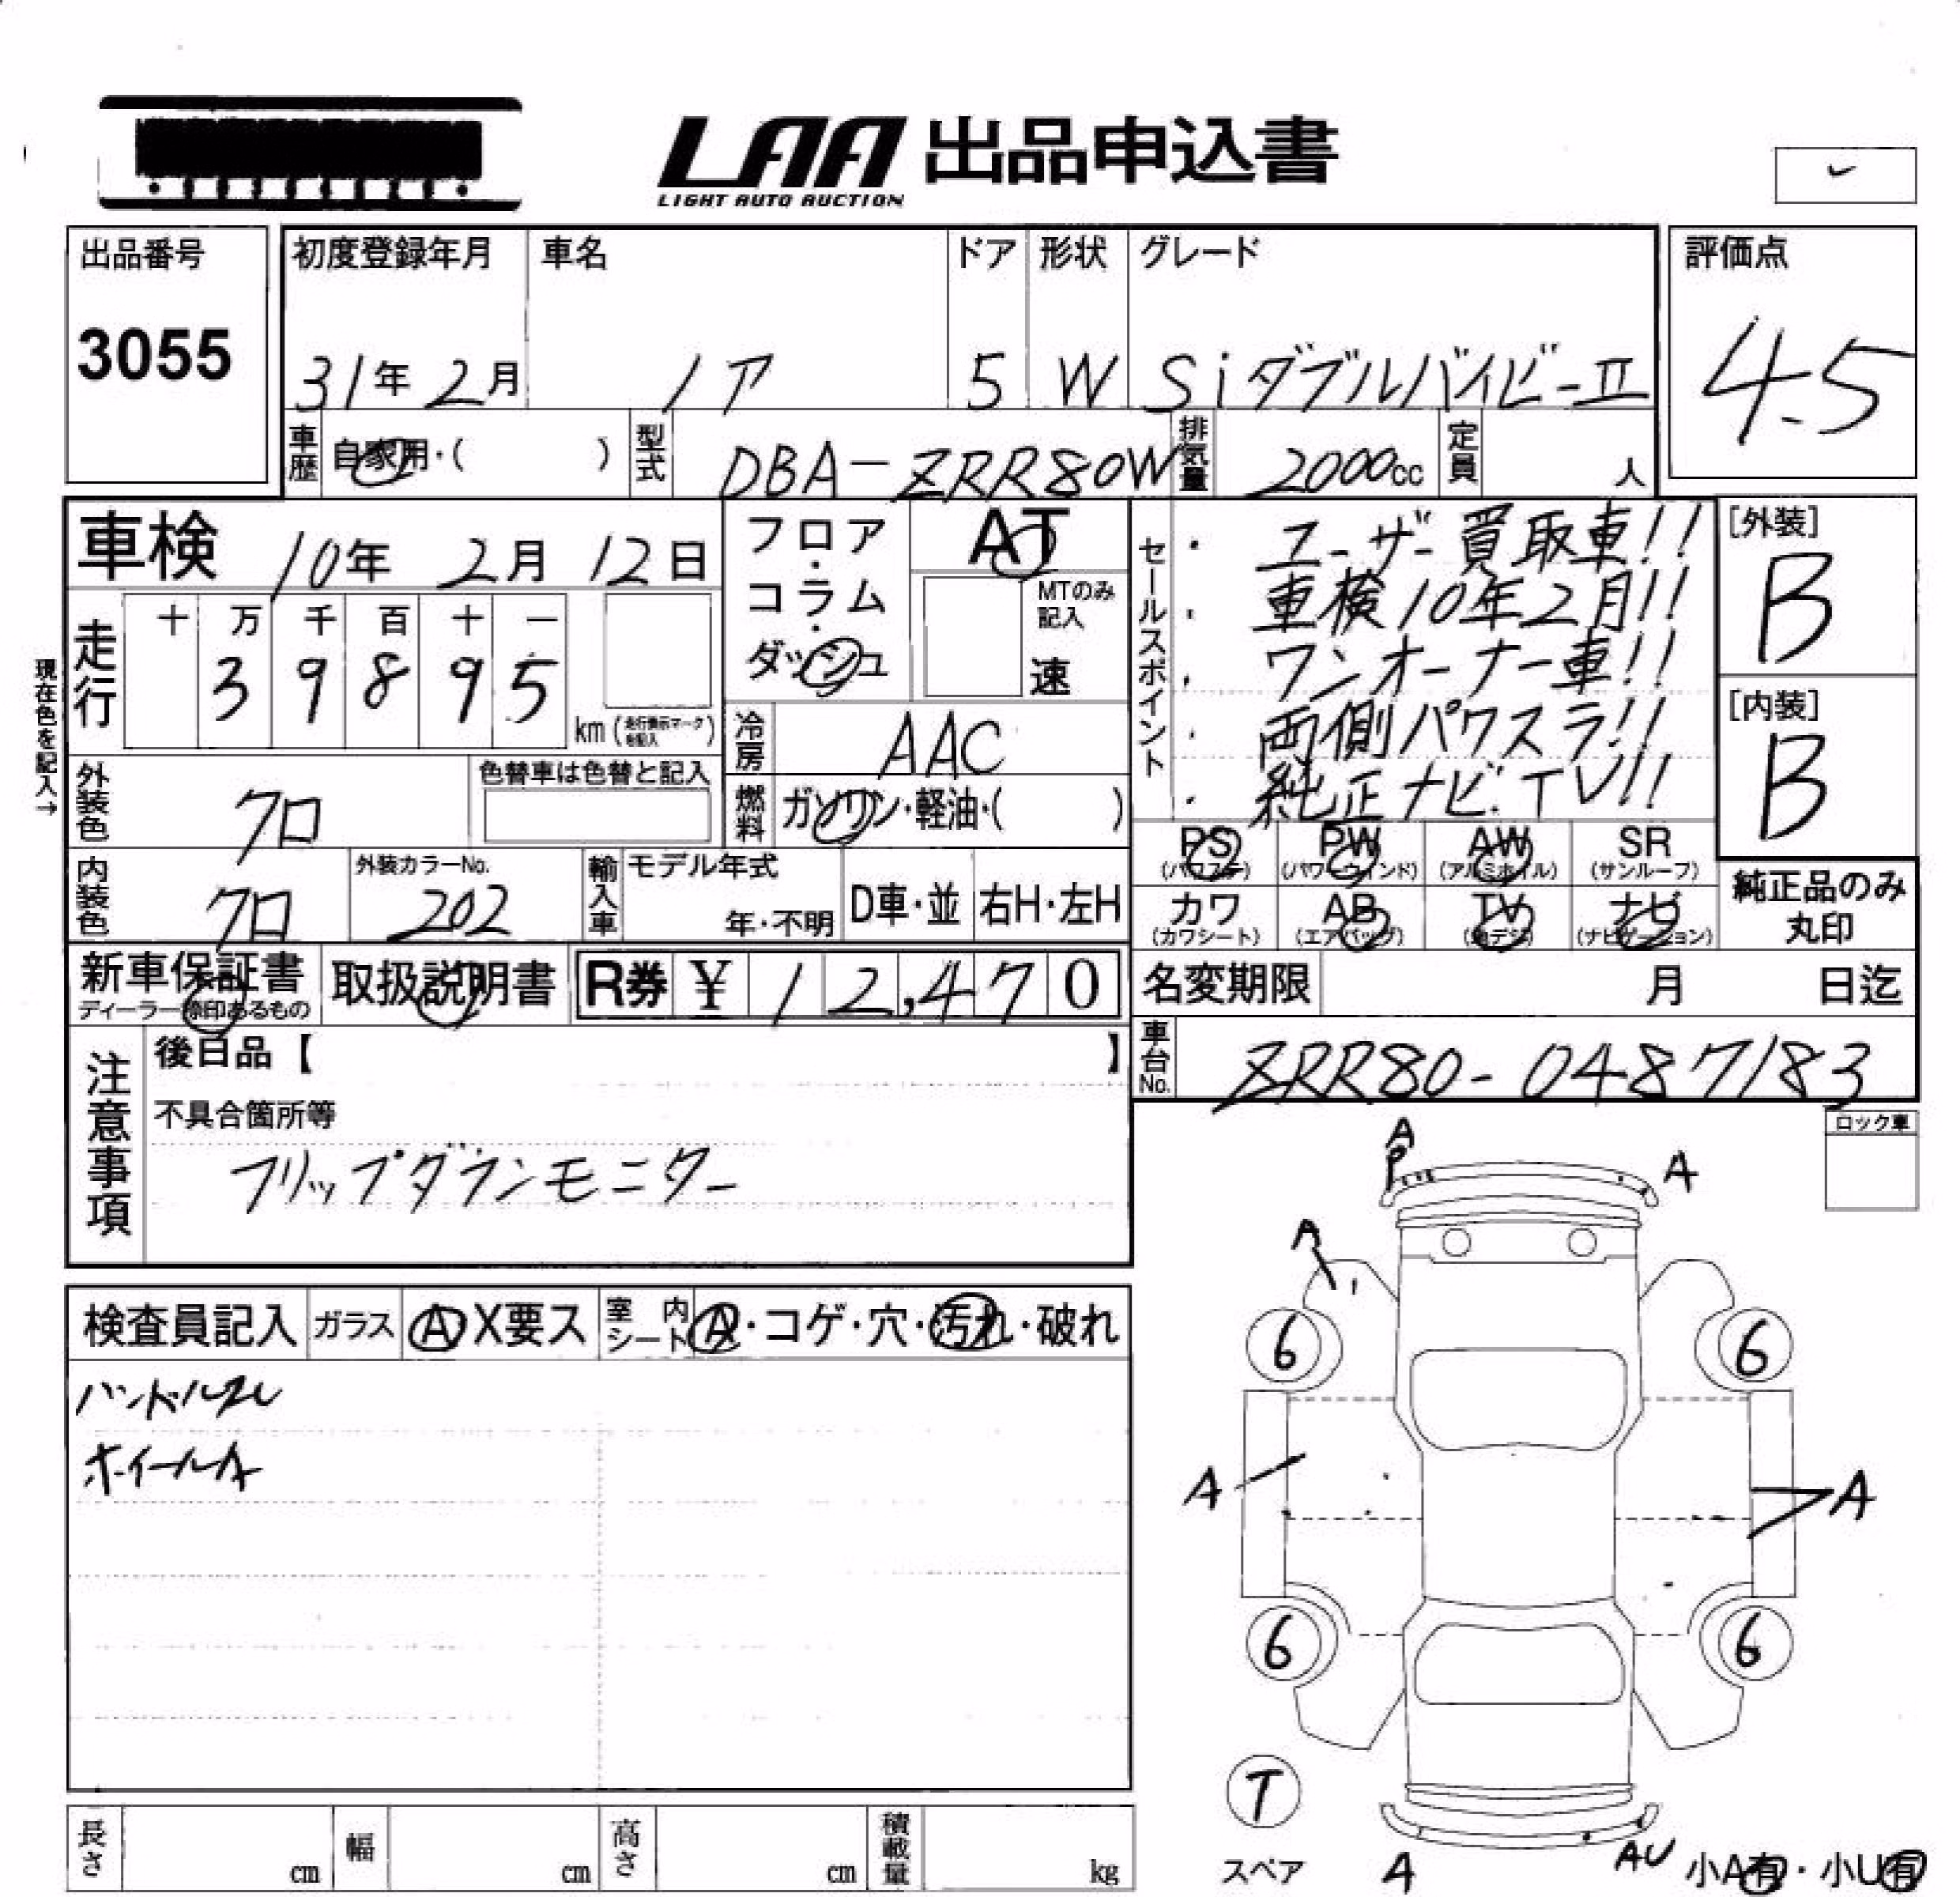 LAA 出品申込書
LIGHT AUTO AUCTION
出品番号
3055
初度登録年月
31年 2月
車名
ノア
ドア
5
形状
W
グレード
SiダブルバイビーII
評価点
4.5
車歴
自家用・( )
型式
DBA-ZRR80W
排気量
2000cc
定員
人
車検 10年 2月 12日
フロア・コラム・ダッシュ
AT
MTのみ記入
速
セールスポイント
・ユーザー買取車!!
・車検10年2月!!
・ワンオーナー車!!
・両側パワスラ!!
・純正ナビ.TV!!
[外装]
B
[内装]
B
現在色を記入→
走行
十 万 千 百 十 一
3 9 8 9 5
km (走行表示マークを記入)
冷房
AAC
燃料
ガソリン・軽油・( )
外装色
クロ
色替車は色替と記入
内装色
クロ
外装カラーNo.
202
輸入車
モデル年式
年・不明
D車・並
右H・左H
PS (パワステ)
PW (パワーウインド)
AW (アルミホイル)
SR (サンルーフ)
カワ (カワシート)
AB (エアバッグ)
TV (地デジ)
ナビ (ナビゲーション)
純正品のみ
丸印
新車保証書
ディーラー捺印あるもの
取扱説明書
R券 ¥ 12,470
名変期限 月 日迄
車台No.
ZRR80-0487183
注意事項
後日品【 】
不具合箇所等
フリップダウンモニター
ロック車
検査員記入
ガラス
A X要ス
室内シート
A・コゲ・穴・汚れ・破れ
ハンドルスレ
ホイールA
A
P
A
A
6
6
A
A
6
6
T
スペア
A
AU
小A有・小U有
長さ cm
幅 cm
高さ cm
積載量 kg